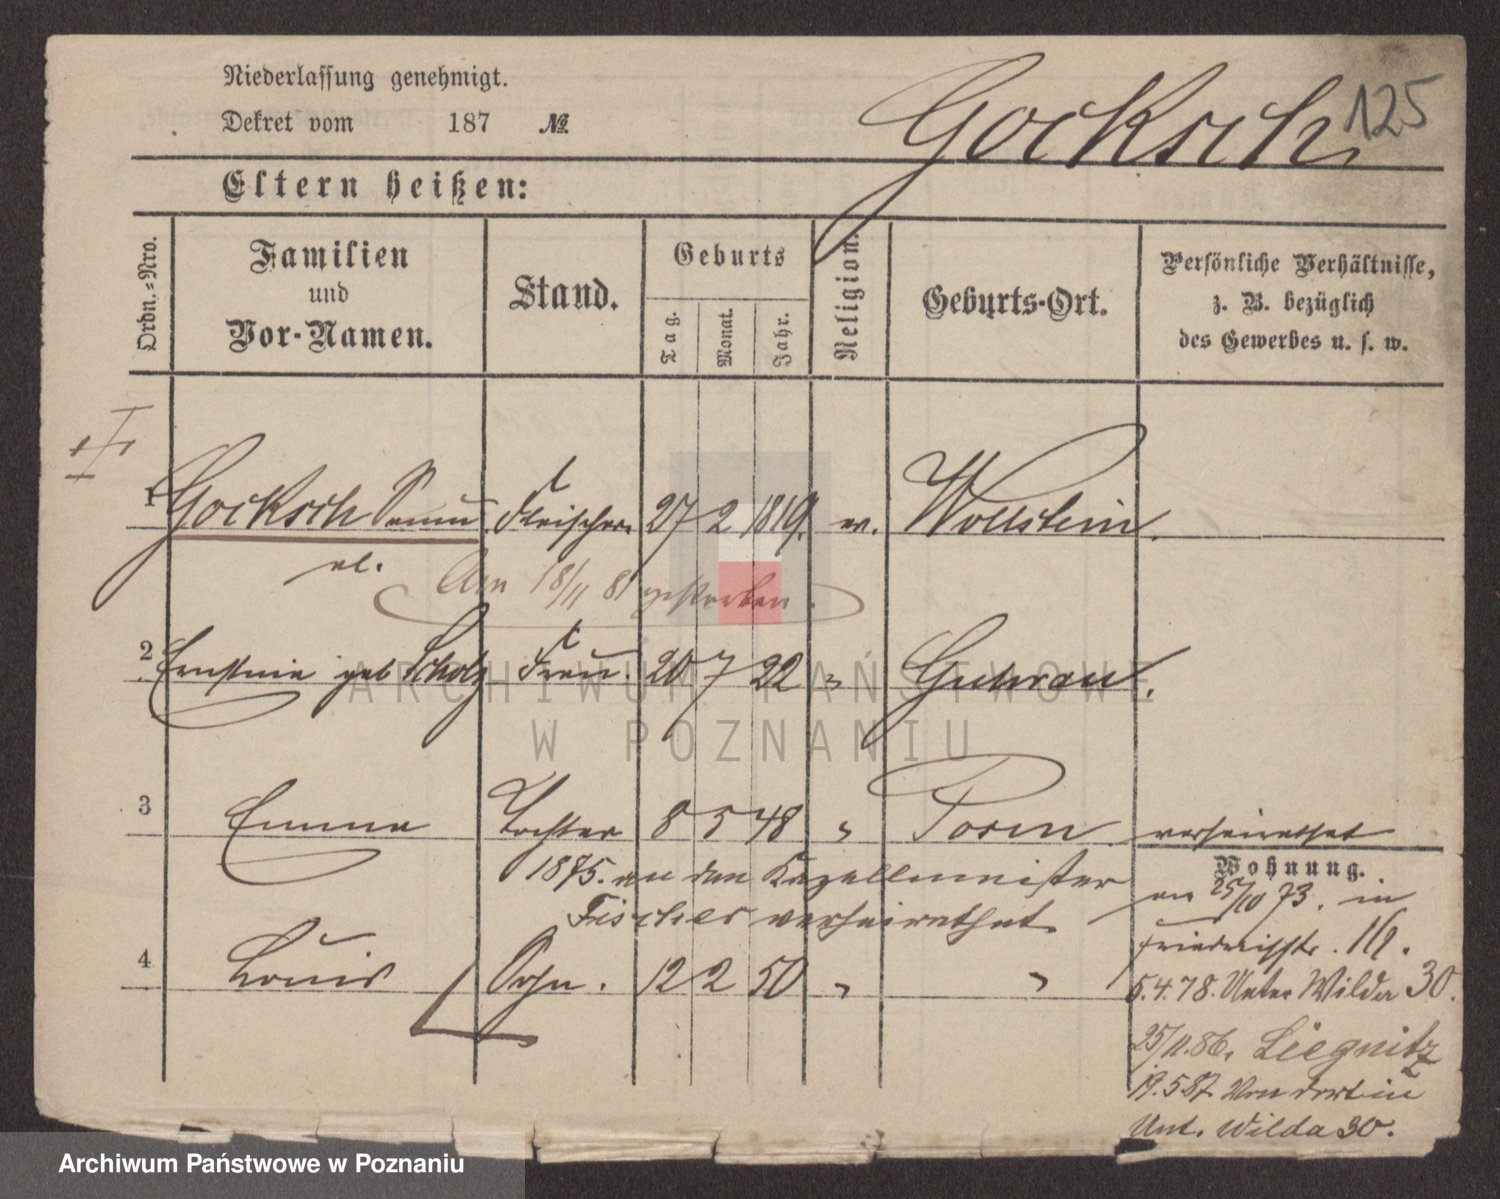 Niederlassung genehmigt.
Dekret vom 187 №
Gocksch 125
Eltern heißen:
Ordn.-Nro.
Familien und Vor-Namen.
Stand.
Geburts
Tag. Monat. Jahr.
Religion.
Geburts-Ort.
Persönliche Verhältnisse,
z. B. bezüglich
des Gewerbes u. s. w.
1 Gocksch Samu Fleischer 27 2 1819. ev. Wollstein.
el.
Am 18/11 81 gestorben.
2 Ernstine geb Scholz Frau. 20 7 22 " Guhrau.
3 Emma Tochter 8 5 48 " Posen verheirathet
1875. an den Kapellmeister
Fischer verheirathet
4 Louis Sohn. 12 2 50 " "
Wohnung.
25/10 73. in
Friedrichstr. 19.
5.4.78. Unter Wilda 30.
25/11.86. Liegnitz
19.5 87. Von dort in
Unt. Wilda 30.
ARCHIWUM PAŃSTWOWE
W POZNANIU
Archiwum Państwowe w Poznaniu